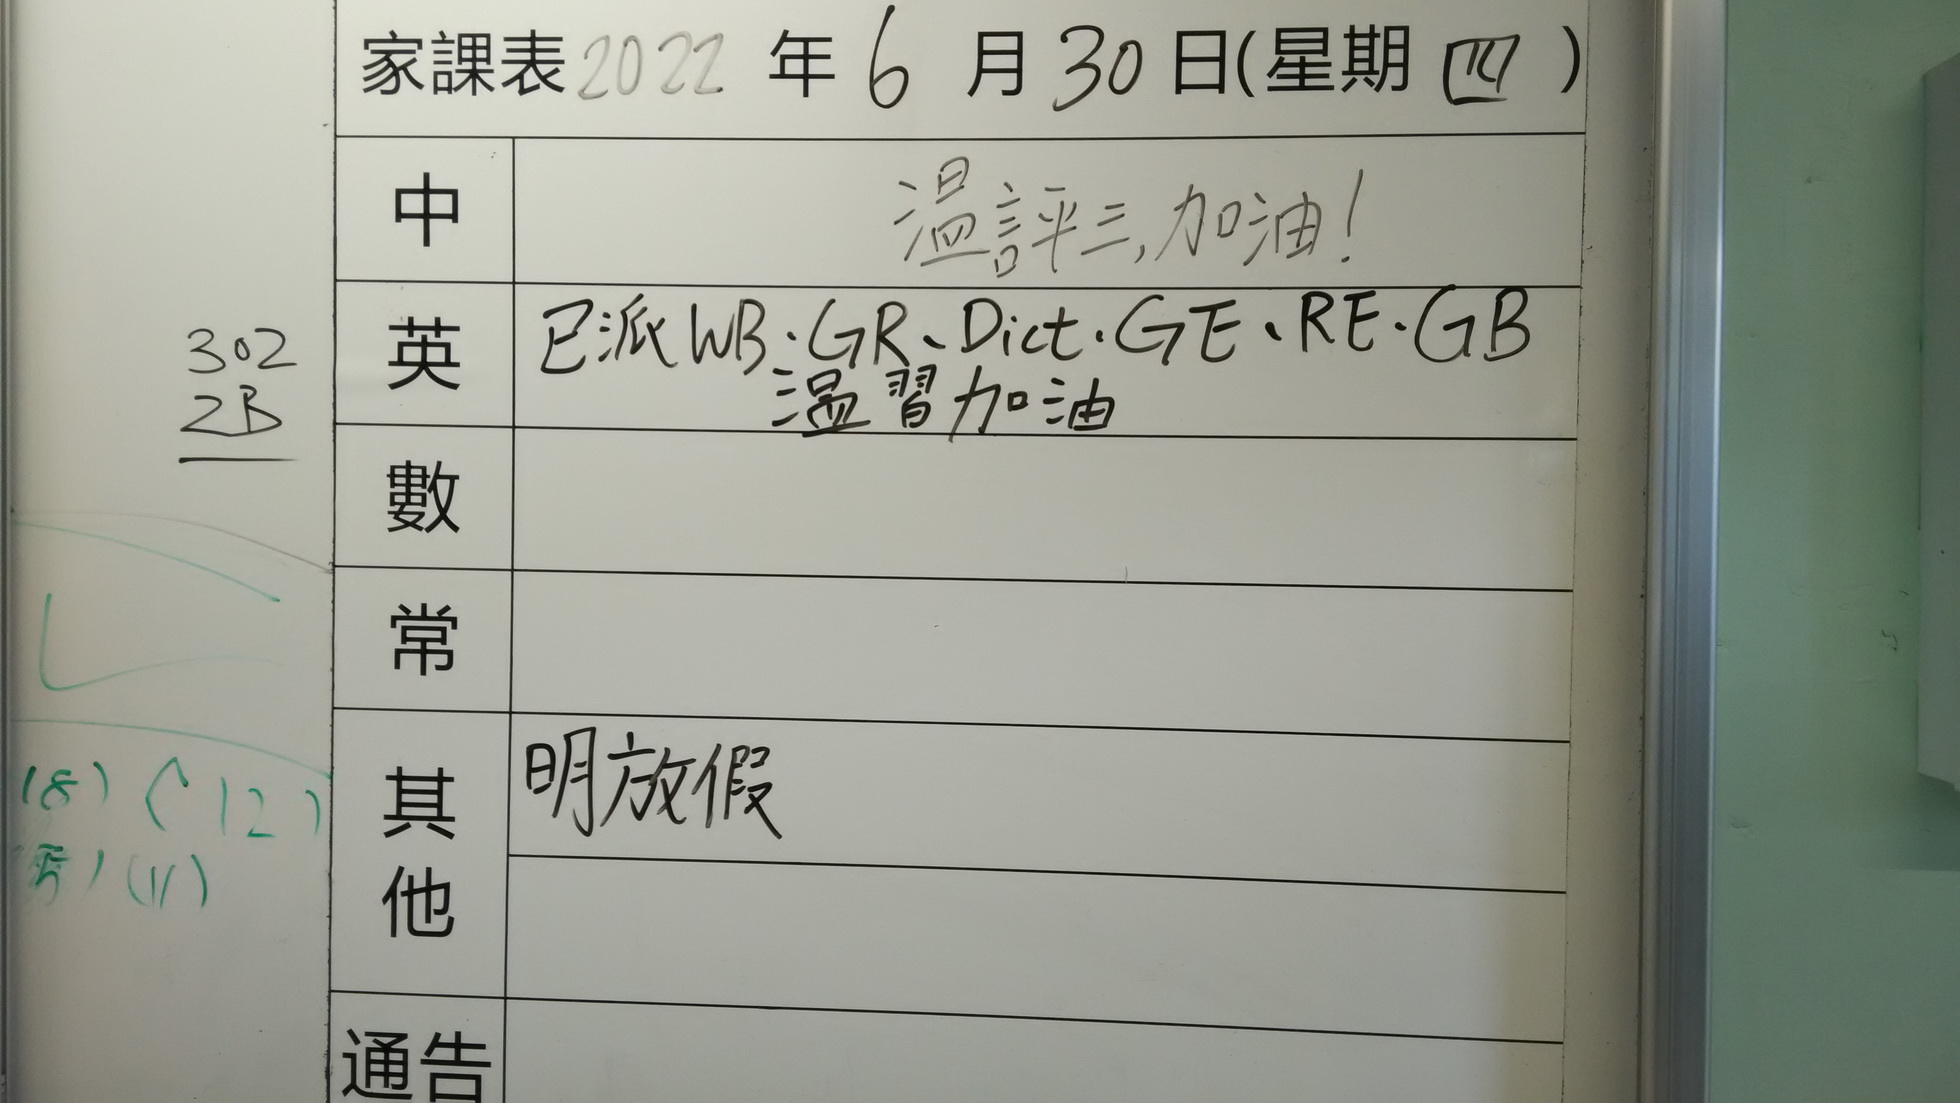 家課表 2022 年 6 月 30 日(星期 四 )
中 温評三,加油!
英 已派WB.GR、Dict.GE、RE.GB
温習加油
數
常
其他 明放假
通告
302
2B
(8) ( 12 )
) (11)